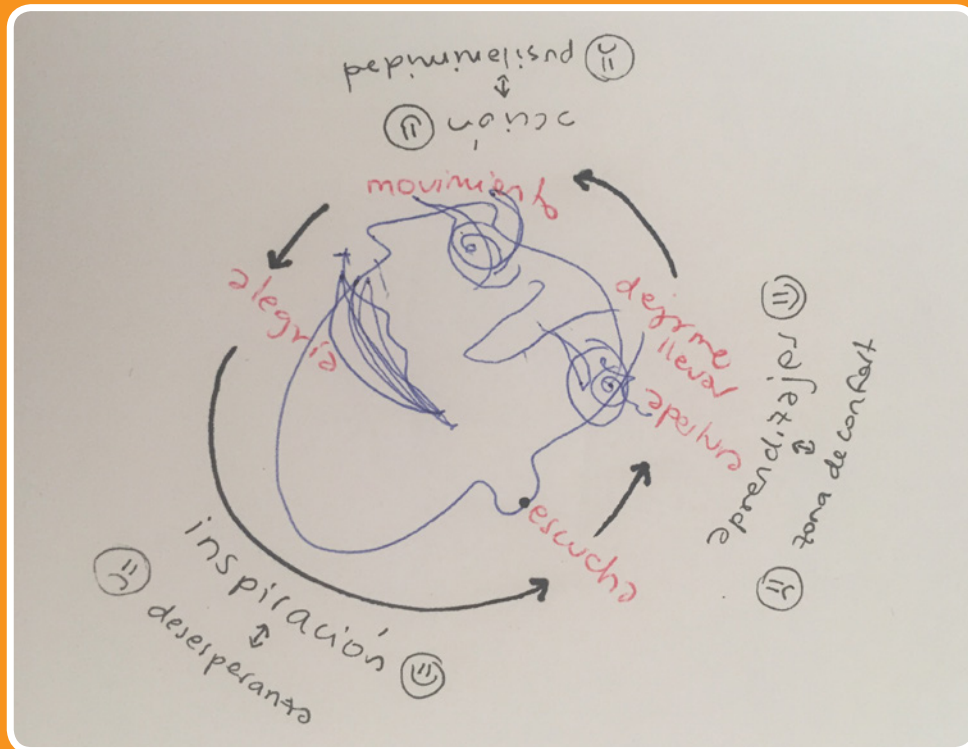 pusilanimidad
acción
movimiento
alegría
dejarme
llevar
apertura
aprendizaje
zona de confort
escucha
inspiración
desesperanza